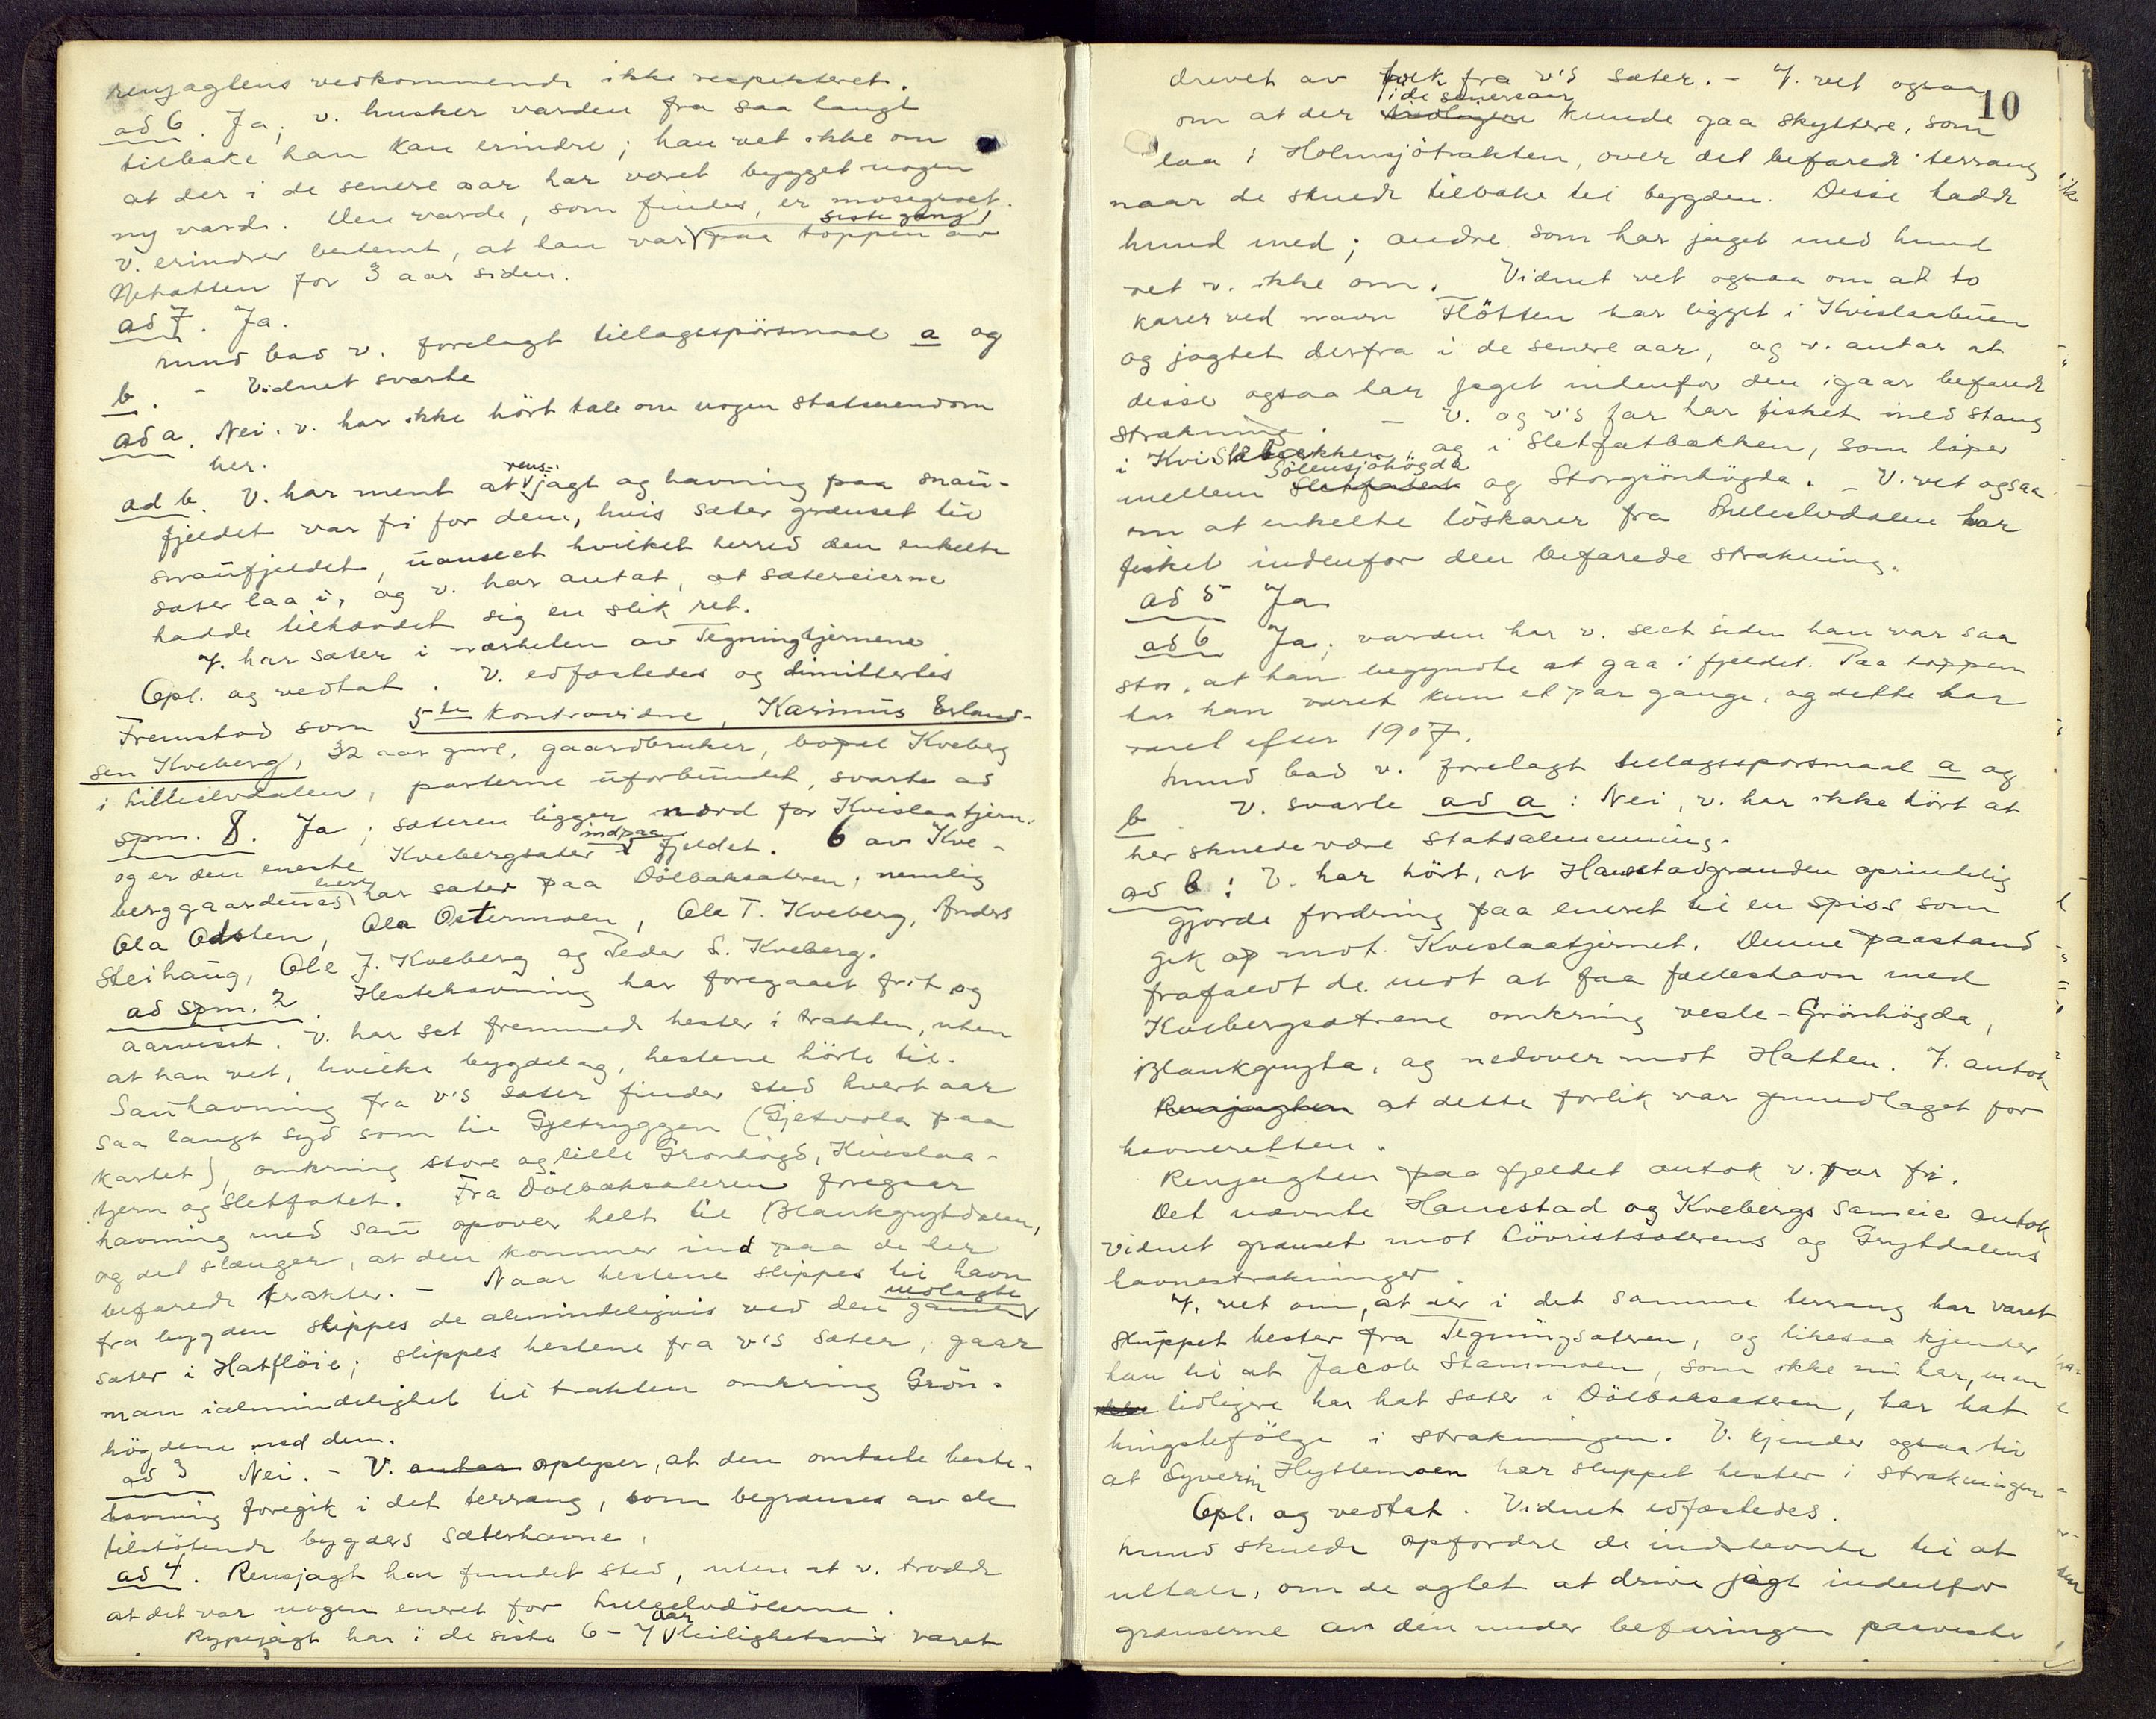 renjagtens vedkommende ikke respekteret.
ad 6. Ja; v. husker varden fra saa langt
tilbake han kan erindre; han vet ikke om
at der i de senere aar har været bygget nogen
ny varde. Den varde, som findes, er mosegroet.
v. erindrer bestemt, at han var siste gang paa toppen av
Hatten for 3 aar siden.
ad 7. Ja.
Lund bad v. forelagt tillægsspörsmaal a og
b. - Vidnet svarte
ad a. Nei. v. har ikke hört tale om nogen statseiendom
her.
ad b. V. har ment at rens-jagt og havning paa snau-
fjeldet var fri for dem, hvis sæter grænset til
snaufjeldet, uanseet hvilket herred den enkelte
sæter laa i, og v. har antat, at sætereierne
hadde tilhævdet sig en slik ret.
V. har sæter i nærheten av Tegningtjernene.
Opl. og vedtat. V. edfæstedes og dimittertes
Fremstod som 5te kontravidne, Karinus Erland-
sen Kveberg, 32 aar gml, gaardbruker, bopæl Kveberg
i Lilleelvdalen, parterne uforbundet, svarte ad
spm. 8. Ja; sæteren ligger nord for Kvislaatjern
og er den eneste Kvebergsæter indpaa fjeldet. 6 av Kve-
berggaardenes eiere har sæter paa Dölbaksæteren, nemlig
Ola Odsten, Ola Ostermoen, Ole T. Kveberg, Anders
Steihaug, Ole J. Kveberg og Peder S. Kveberg.
ad spm. 2. Hestehavning har foregaaet frit og
aarvisst. V. har set fremmede hester i trakten, uten
at han vet, hvilke bygdelag, hestene hörte til.
Sauhavning fra v's sæter finder sted hvert aar
saa langt syd som til Gjetryggen (Gjetvola paa
kartet), omkring store og lille Grönhögd, Kvislaa-
tjern og Sletfatet. Fra Dölbaksæteren foregaar
havning med sau opover helt til Blankgrytdalen,
og det slænger, at den kommer ind paa de her
befarede trakter. - Naar hestene slippes til havn
fra bygden slippes de almindeligvis ved den gamle nedlagte
sæter i Hatflöie; slippes hestene fra v's sæter, gaar
man i almindelighet til trakten omkring Grön-
högdene med dem.
ad 3 Nei. - V. antar oplyser, at den omtalte heste-
havning foregik i det terræng, som begrænses av de
tilstötende bygders sæterhavne.
ad 4. Rensjagt har fundet sted, uten at v. trodde
at det var nogen eneret for Lilleelvdölerne.
Rypejagt har i de siste 6-7 aar leilighetsvis været
10
drevet av folk fra v's sæter. - V. vet ogsaa
om at der tidligere i de senere aar kunde gaa skyttere, som
laa i Holmsjötrakten, over det befarede terræng
naar de skulde tilbake til bygden. Disse hadde
hund med; andre som har jaget med hund
vet v. ikke om. Vidnet vet ogsaa om at to
karer ved navn Flötten har ligget i Kvislaabuen
og jagtet derfra i de senere aar, og v. antar at
disse ogsaa har jaget indenfor den igaar befarede
strækning. - V. og v's far har fisket med stang
i Kvislabækken og i Sletfatbækken, som löper
mellem Sletfatet Sölensjöhögda og Storgrönhögda. - V. vet ogsaa
om at enkelte löskarer fra Lilleelvdalen har
fisket indenfor den befarede strækning.
ad 5 Ja
ad 6 Ja; varden har v. seet siden han var saa
stor, at han begyndte at gaa i fjeldet. Paa toppen
har han været kun et par gange, og dette har
været efter 1907.
Lund bad v. forelagt tillægsspørsmaal a og
b. V. svarte ad a: Nei, v. har ikke hört at
her skulde være statsalmenning.
ad b: V. har hört, at Hanestadgrænden oprindelig
gjorde fordring paa eneret til en spiss som
gik op mot Kvislaatjernet. Denne paastand
frafaldt de mot at faa fælleshavn med
Kvebergsætrene omkring vesle-Grönhögda,
Blankgryta, og nedover mot Hatten. V. antok
Rensjagten at dette forlik var grundlaget for
havneretten.
Rensjagten paa fjeldet antok v. var fri.
Det nævnte Hanestad og Kvebergs sameie antok
Vidnet grænset mot Lövristsæterens og Grytdalens
havnestrækninger.
V. vet om, at der i det samme terræng har været
sluppet hester fra Tegningsæteren, og likesaa kjender
han til at Jacob Stammoen, som ikke nu har, men
tidligere har hat sæter i Dölbaksæteren, har hat
hingstefölge i strækningen. V. kjender ogsaa til
at Syverin Hyttemoen har sluppet hester i strækningen
Opl. og vedtat. Vidnet edfæstedes.
Lund skulde opfordre de indstevnte til at
uttale, om de agtet at drive jagt indenfor
grænserne av den under befaringen paaviste